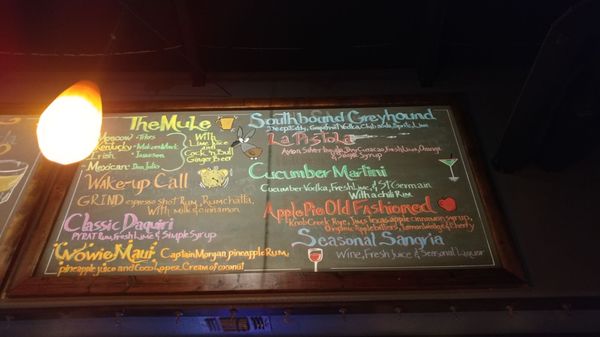 The Mule
Moscow - Titos
Kentucky - Makers Mark
Irish - Jameson
Mexican - Don Julio
With
Lime Juice
and
Cock 'N Bull
Ginger Beer
Wake-up Call
GRIND espresso shot Rum, Rumchata,
With milk & cinnamon
Classic Daquiri
PYRAT Rum, Fresh Lime & Simple Syrup
Wowie Maui Captain Morgan pineapple Rum,
pineapple juice and Coco Lopez Cream of coconut
Southbound Greyhound
Deep Eddy Grapefruit Vodka, Club soda, Sprite, Lime
La Pistola
Avion Silver tequila, Dry Curacao, Fresh Lime, Orange
& Simple Syrup
Cucumber Martini
Cucumber Vodka, Fresh Lime, & St Germain
With a chili Rim
Apple Pie Old Fashioned
Knob Creek Rye, apple cinnamon syrup,
Organic Apple bitters, Lemon Wedge & Cherry
Seasonal Sangria
Wine, Fresh Juice & Seasonal Liquor